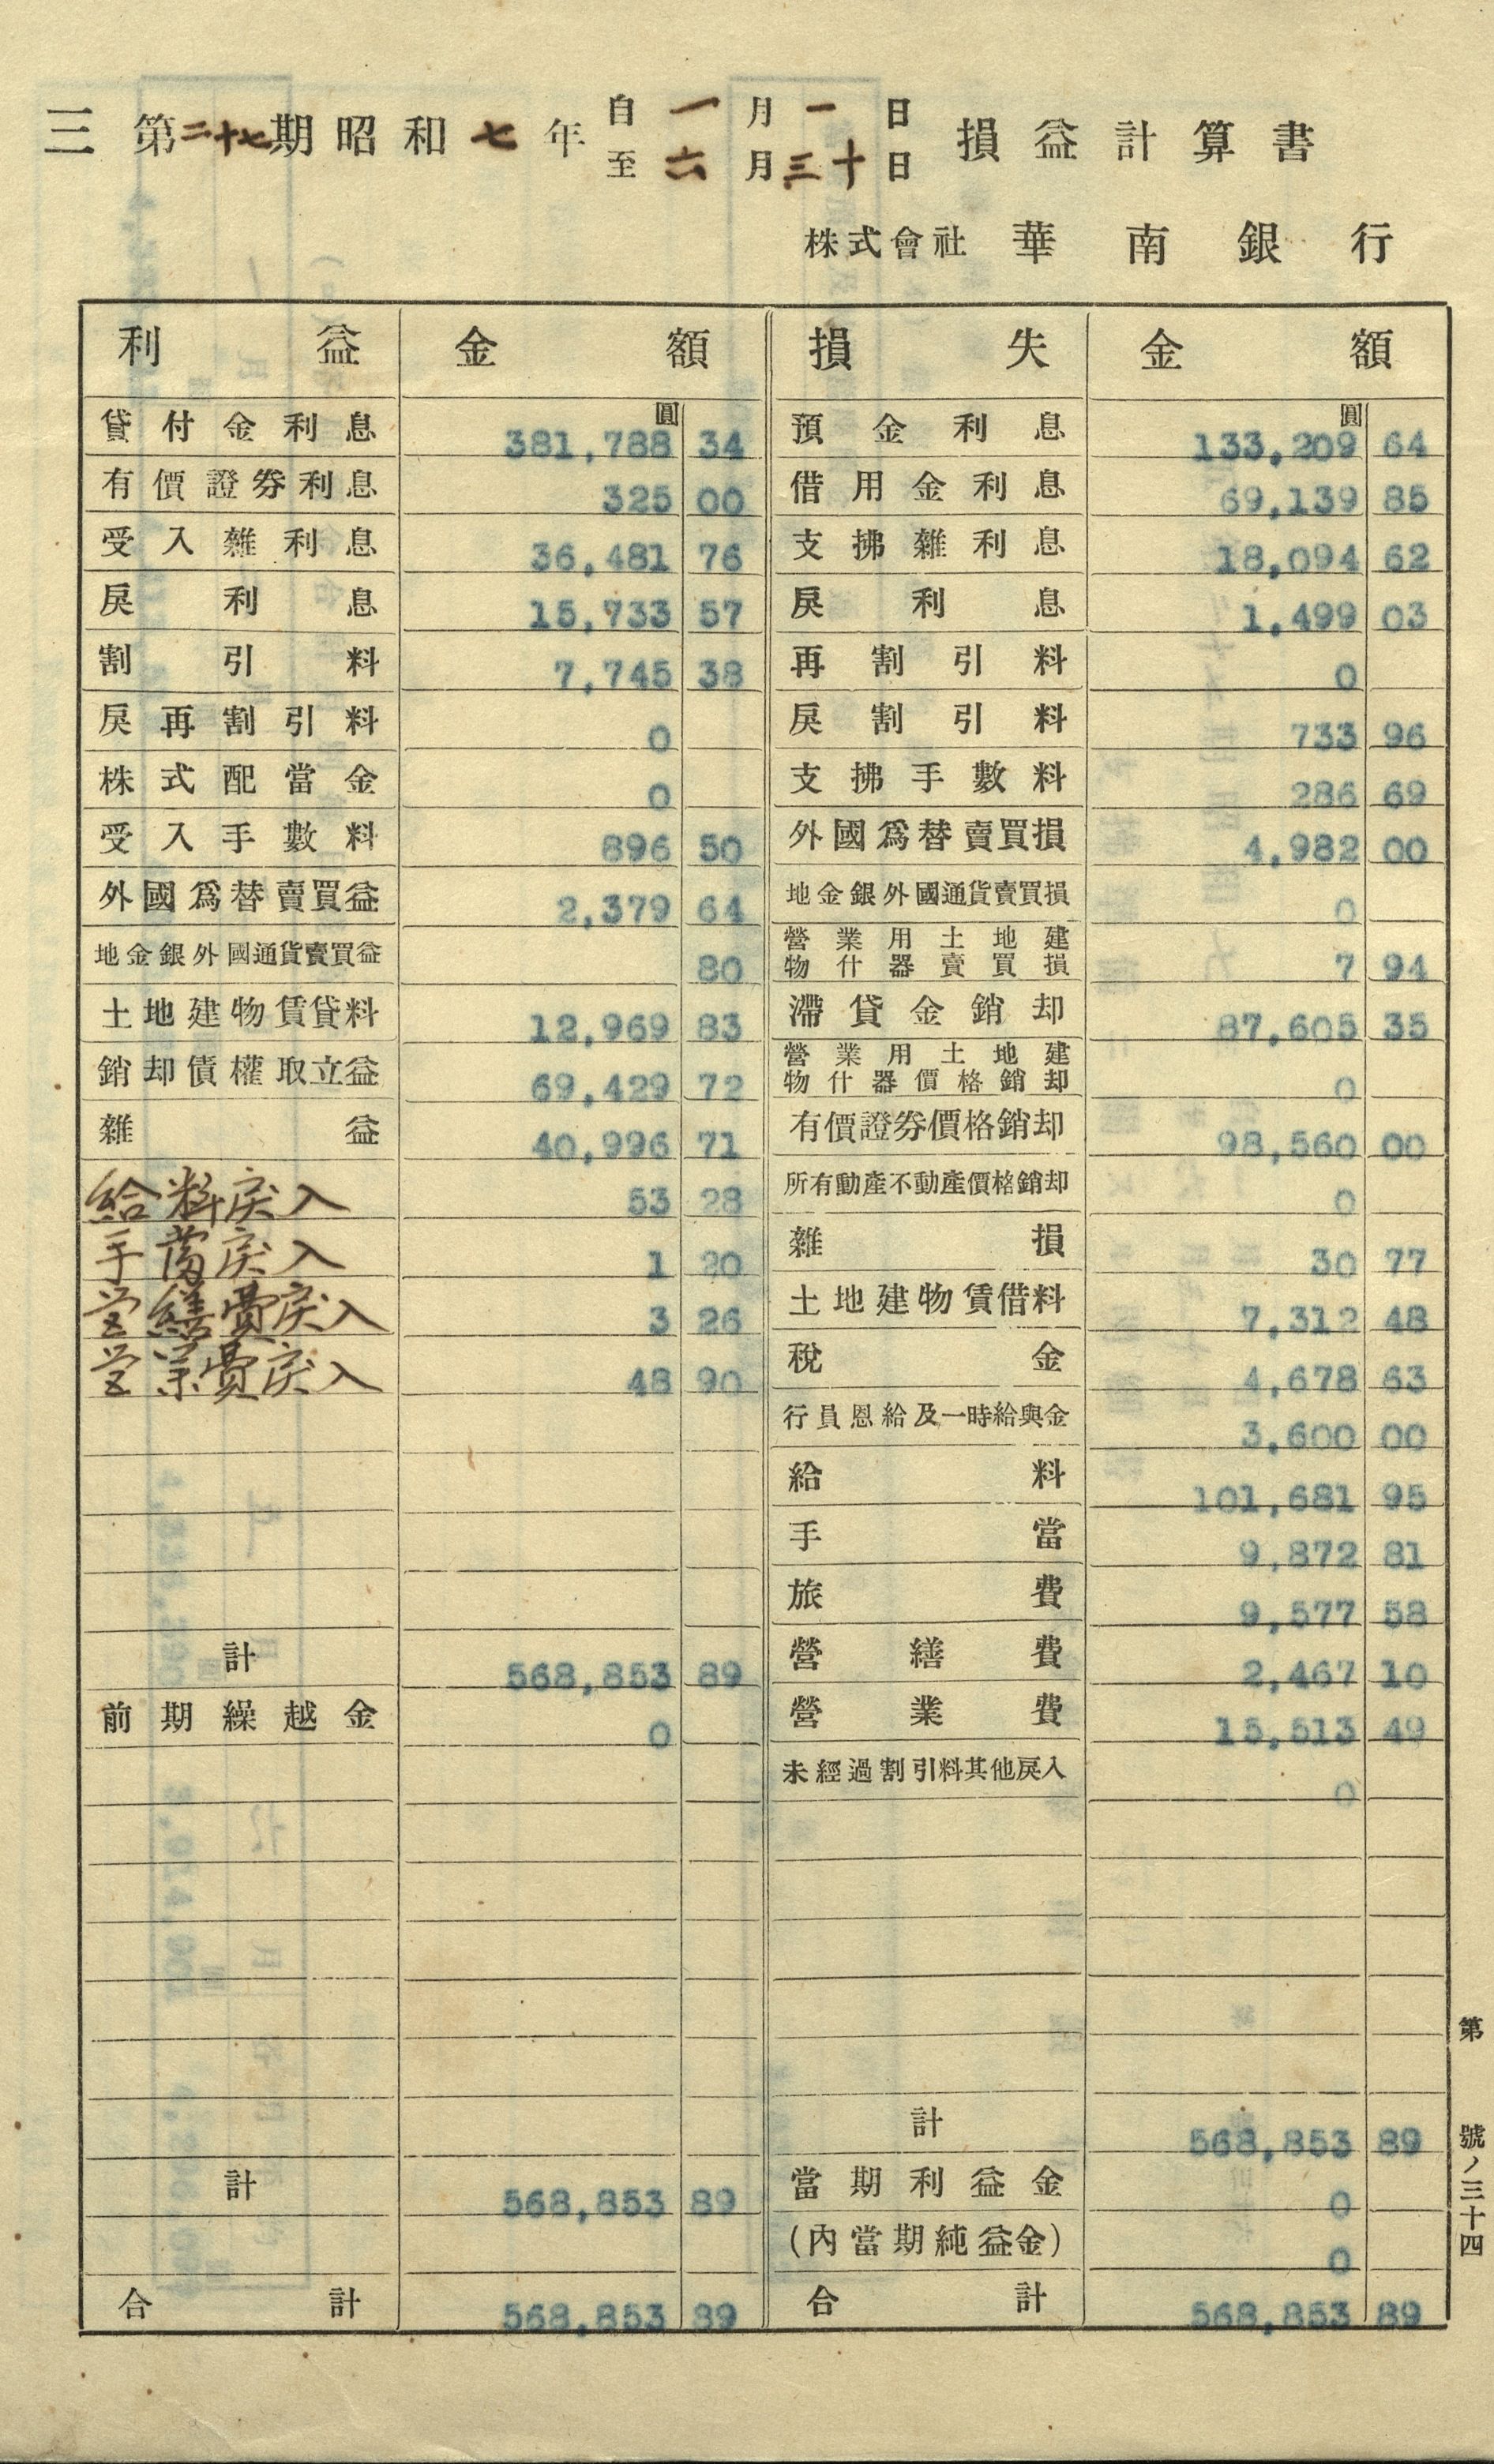 三 第二十七期昭和七年 自一月一日 至六月三十日 損益計算書
株式會社 華南銀行
利益 金額 損失 金額
貸付金利息 381,788圓34 預金利息 133,209圓64
有價證券利息 325 00 借用金利息 69,139 85
受入雜利息 36,481 76 支拂雜利息 18,094 62
戾利息 15,733 57 戾利息 1,499 03
割引料 7,745 38 再割引料 0
戾再割引料 0 戾割引料 733 96
株式配當金 0 支拂手數料 286 69
受入手數料 896 50 外國爲替賣買損 4,982 00
外國爲替賣買益 2,379 64 地金銀外國通貨賣買損 0
地金銀外國通貨賣買益 80 營業用土地建物什器賣買損 7 94
土地建物賃貸料 12,969 83 滯貸金銷却 87,605 35
銷却債權取立益 69,429 72 營業用土地建物什器價格銷却 0
雜益 40,996 71 有價證券價格銷却 98,560 00
給料戾入 53 28 所有動產不動產價格銷却 0
手當戾入 1 20 雜損 30 77
営繕費戾入 3 26 土地建物賃借料 7,312 48
営業費戾入 48 90 稅金 4,678 63
行員恩給及一時給與金 3,600 00
給料 101,681 95
手當 9,872 81
旅費 9,577 58
計 568,853 89 營繕費 2,467 10
前期繰越金 0 營業費 15,513 49
未經過割引料其他戾入 0
計 568,853 89
計 568,853 89 當期利益金 0
(內當期純益金) 0
合計 568,853 89 合計 568,853 89
第 號ノ三十四